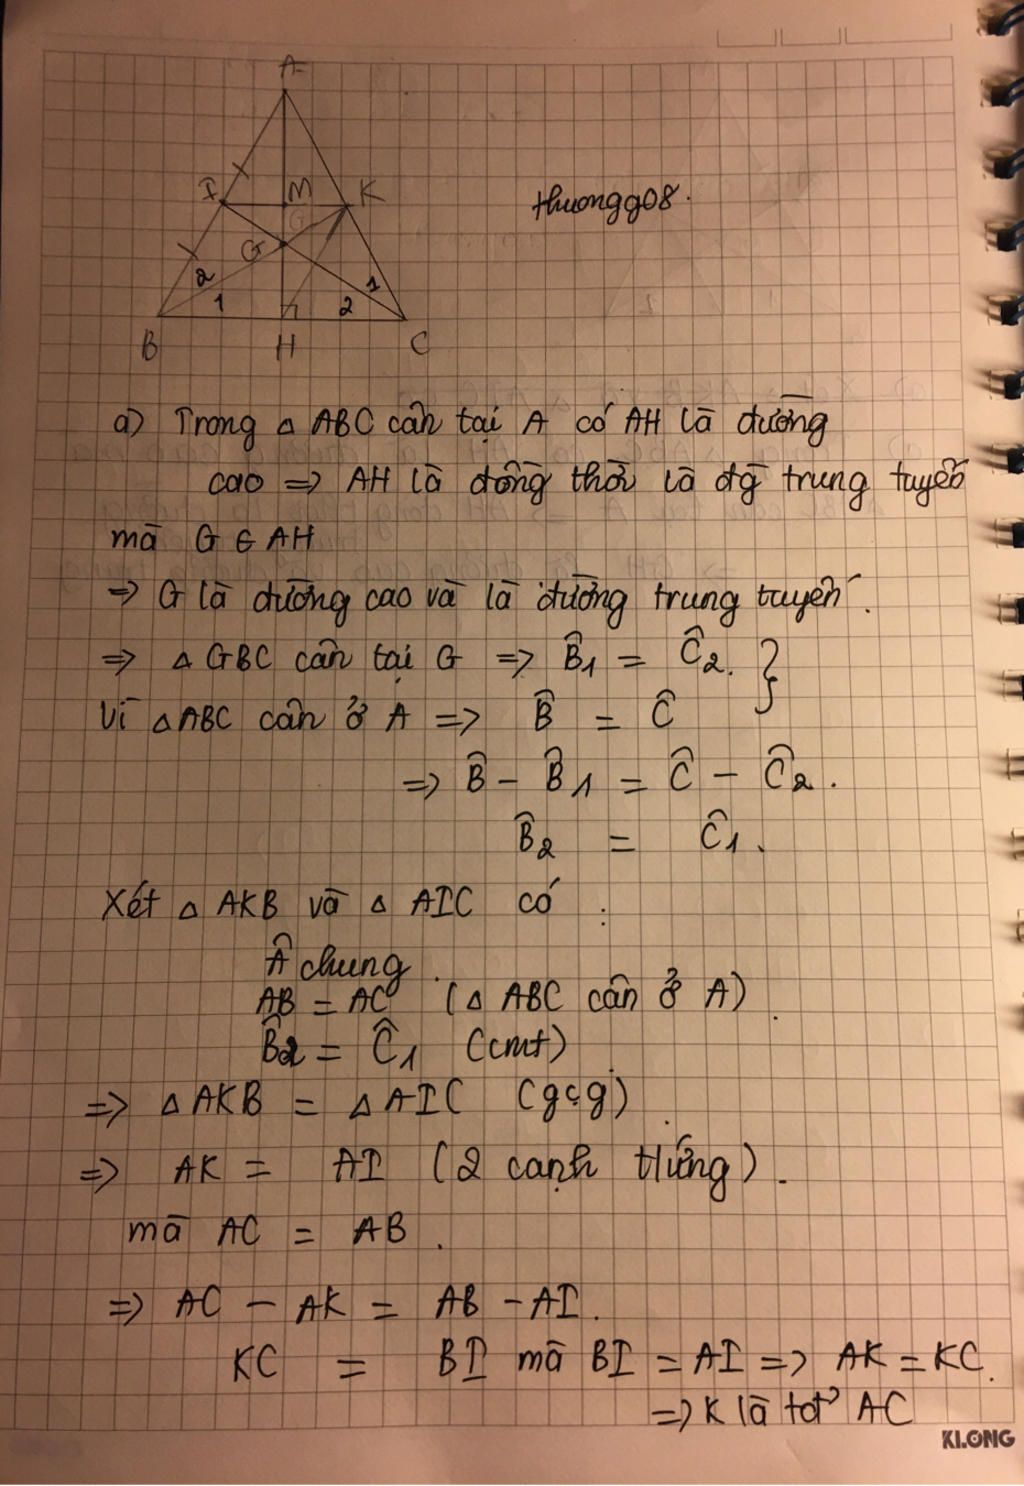 A
I M K
G
2 1
1 2
B H C
thuongg08.
a) Trong △ ABC cân tại A có AH là đường
cao => AH là đồng thời là đg trung tuyến
mà G ∈ AH
=> G là đường cao và là đường trung tuyến.
=> △ GBC cân tại G => B̂1 = Ĉ2. }
Vì △ABC cân ở A => B̂ = Ĉ
=> B̂ - B̂1 = Ĉ - Ĉ2.
B̂2 = Ĉ1.
Xét △ AKB và △ AIC có :
Â chung.
AB = AC (△ ABC cân ở A).
B̂2 = Ĉ1 (cmt)
=> △ AKB = △ AIC (gcg).
=> AK = AI (2 cạnh t/ứng).
mà AC = AB.
=> AC - AK = AB - AI.
KC = BI mà BI = AI => AK = KC.
=> K là tđ AC
KLONG